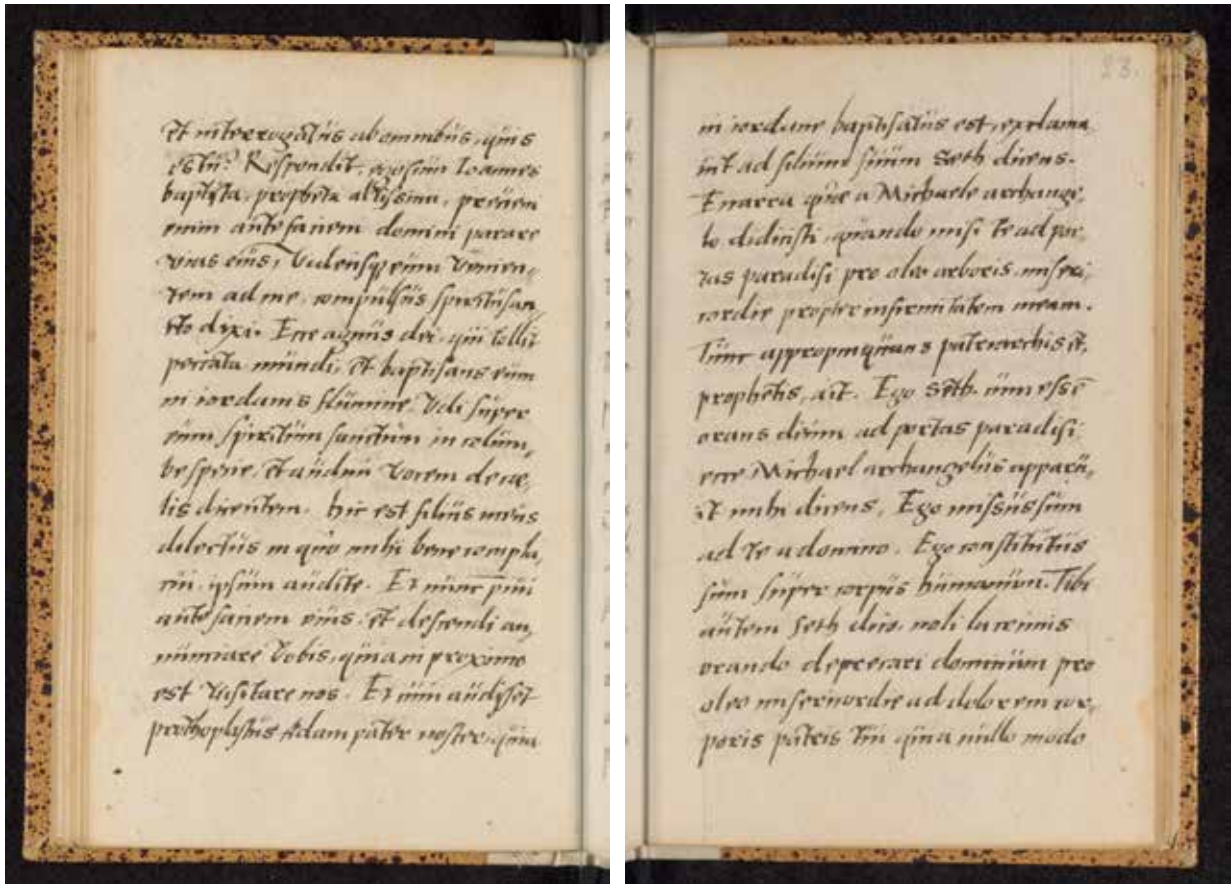 et interrogatus ab omnibus, quis
estu? Respondit, ego sum Ioannes
baptista, propheta altissimi, preiens
enim ante faciem domini parare
vias eius, Vidensq; eum Venien,
tem ad me, compulsus spiritu san
cto dixi. Ecce agnus dei, qui tollit
peccata mundi, et baptisans eum
in iordanis flumine, Vidi super
eum spiritum sanctum in colum,
be specie, et audiui Vocem de cæ,
lis dicentem. hic est filius meus
dilectus in quo mihi bene compla,
cui, ipsum audite. Et nunc piui
ante faciem eius, et descendi an,
nunciare Vobis, quia in proximo
est Visitare nos. Et cum audisset
prothoplastus Adam pater noster, quia
23.
in iordane baptisatus est, exclama
uit ad filium suum Seth dicens.
Enarra quæ a Michaele archange,
lo didicisti, quando misi te ad por,
tas paradisi pro oleo arboris, miseri,
cordie propter infirmitatem meam.
Tunc appropinquans patriarchis et,
prophetis, ait. Ego Seth, cum essē
orans deum ad portas paradisi
ecce Michael archangelus apparu,
it mihi dicens, Ego missus sum
ad te a domino. Ego constitutus
sum super corpus humanum. Tibi
autem Seth dico, noli lacrimis
orando deprecari dominum pro
oleo misericordie ad dolorem cor,
poris patris tui quia nullo modo